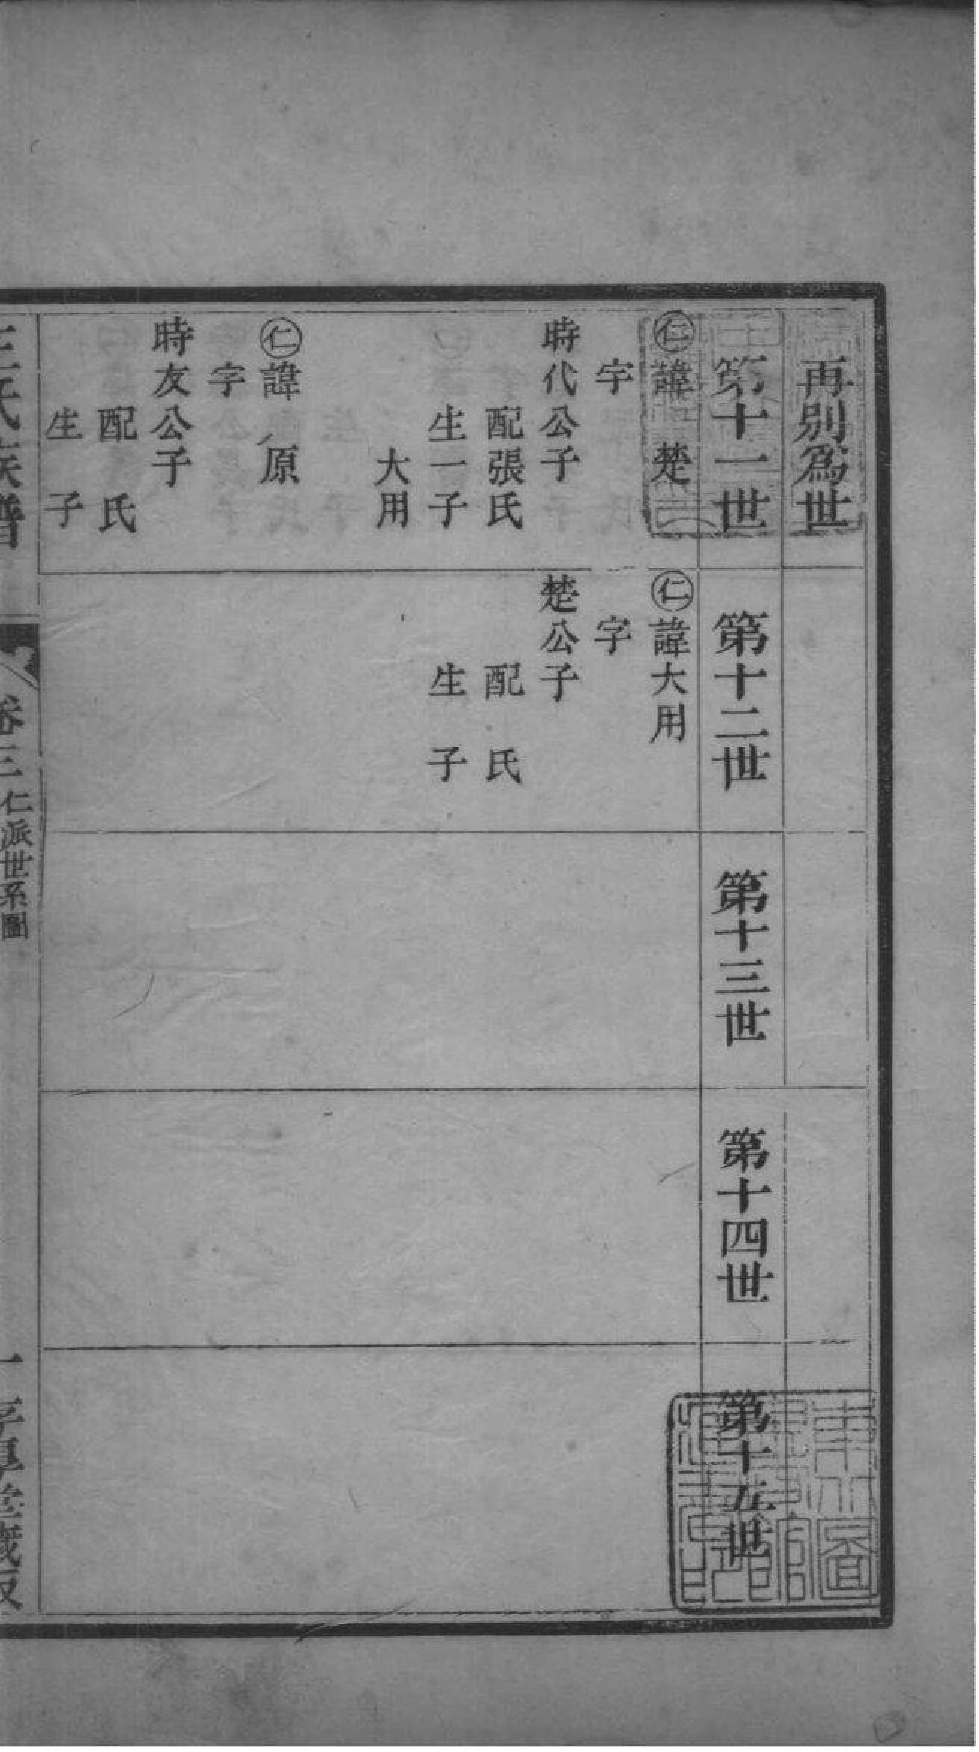 再別為世
第十一世
㊀諱 楚
字
時代公子
配張氏
生一子
大用
㊀諱 原
字
時友公子
配 氏
生 子
第十二世
㊀諱大用
字
楚公子
配 氏
生 子
第十三世
第十四世
第十五世
王氏族譜
卷三
仁派世系圖
一